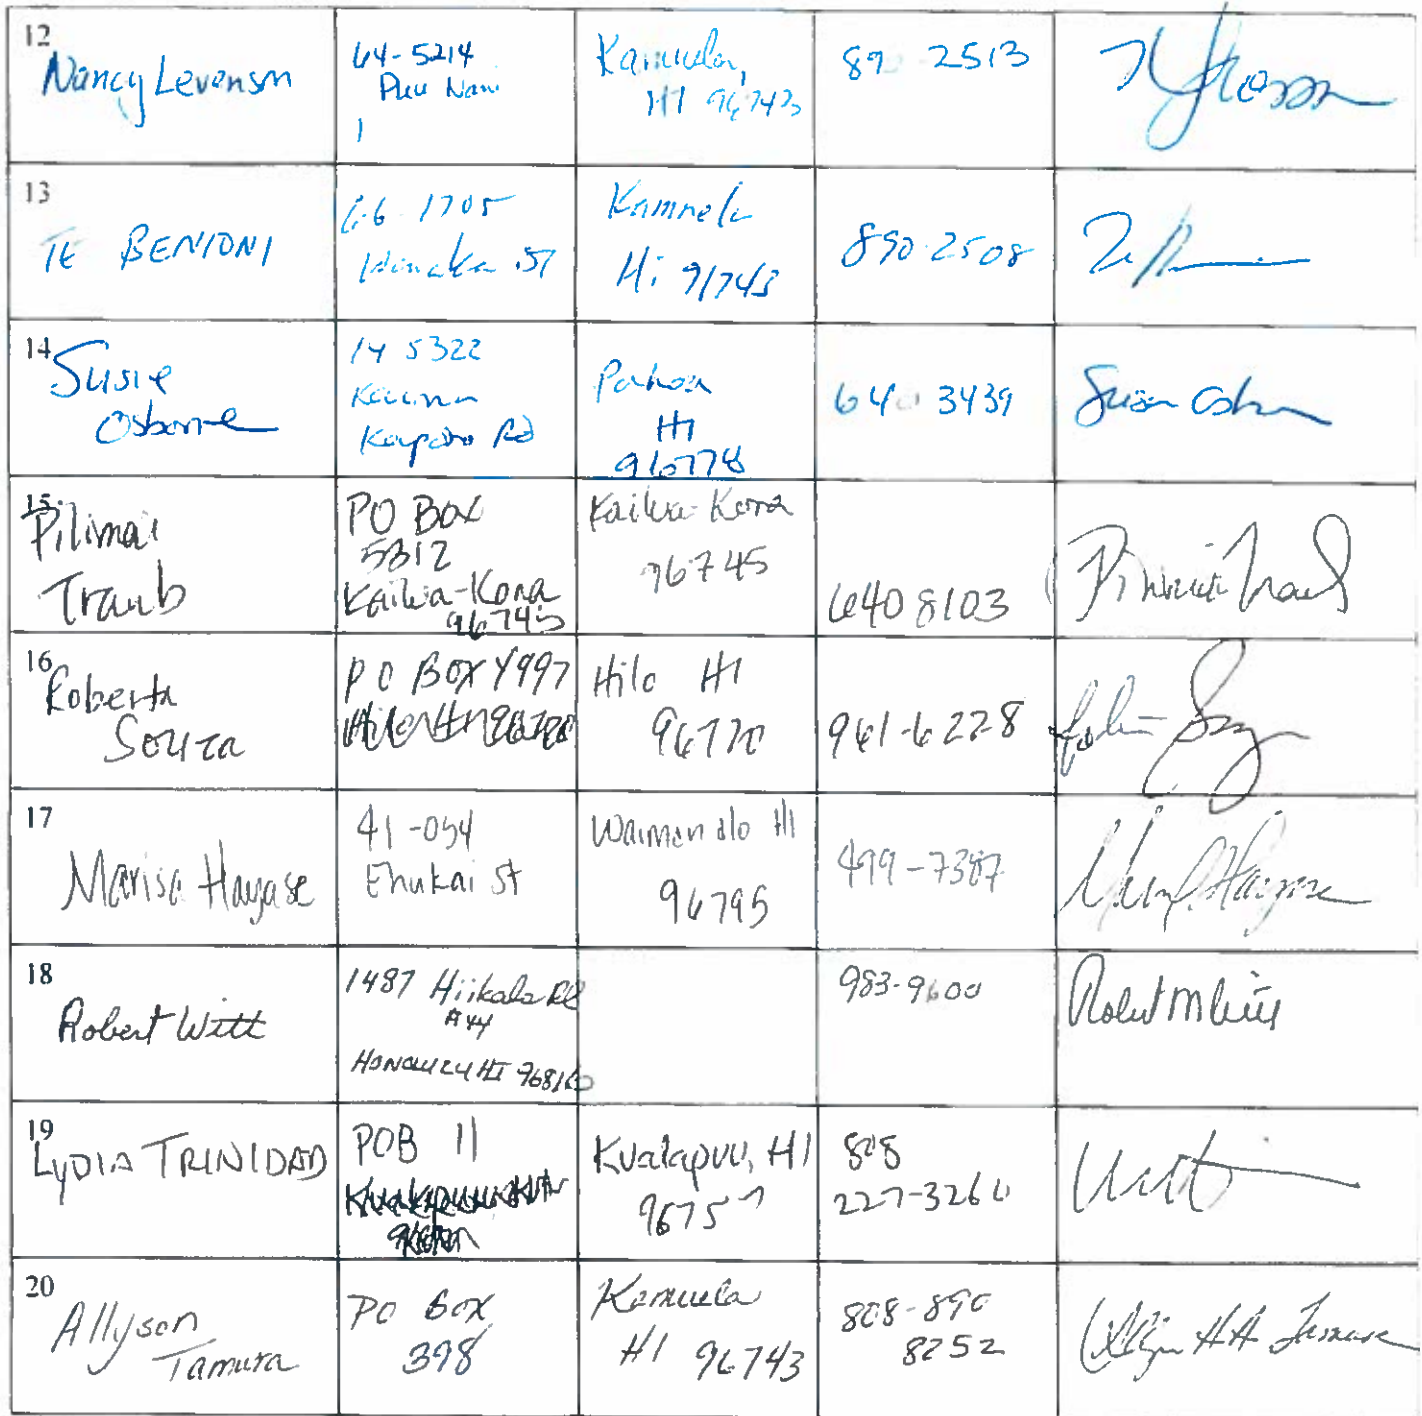 12
Nancy Levenson
64-5214
Puu Nani
1
Kamuela,
HI 96743
89 2513
13
TE BENIONI
66 1705
St
Kamuela
Hi 91743
890-2508
14
Susie
Osborne
14 5322
Rd
Pahoa
HI
96778
640 3439
Susan
15.
Pilimai
Traub
PO Box
5312
Kailua-Kona
96745
Kailua-Kona
96745
640 8103
16
Roberta
Souza
PO BOX 4997
Hilo HI
96720
961-6228
17
Marisa Hayase
41-054
Ehukai St
Waimanalo HI
96795
499-7387
18
Robert Witt
1487 Hiikala Pl
#44
HONOLULU HI 96816
983-9600
Robert M Witt
19
LYDIA TRINIDAD
POB 11
Kualapuu, HI
96757
808
227-3260
20
Allyson
Tamura
PO Box
398
Kamuela
HI 96743
808-890
8252